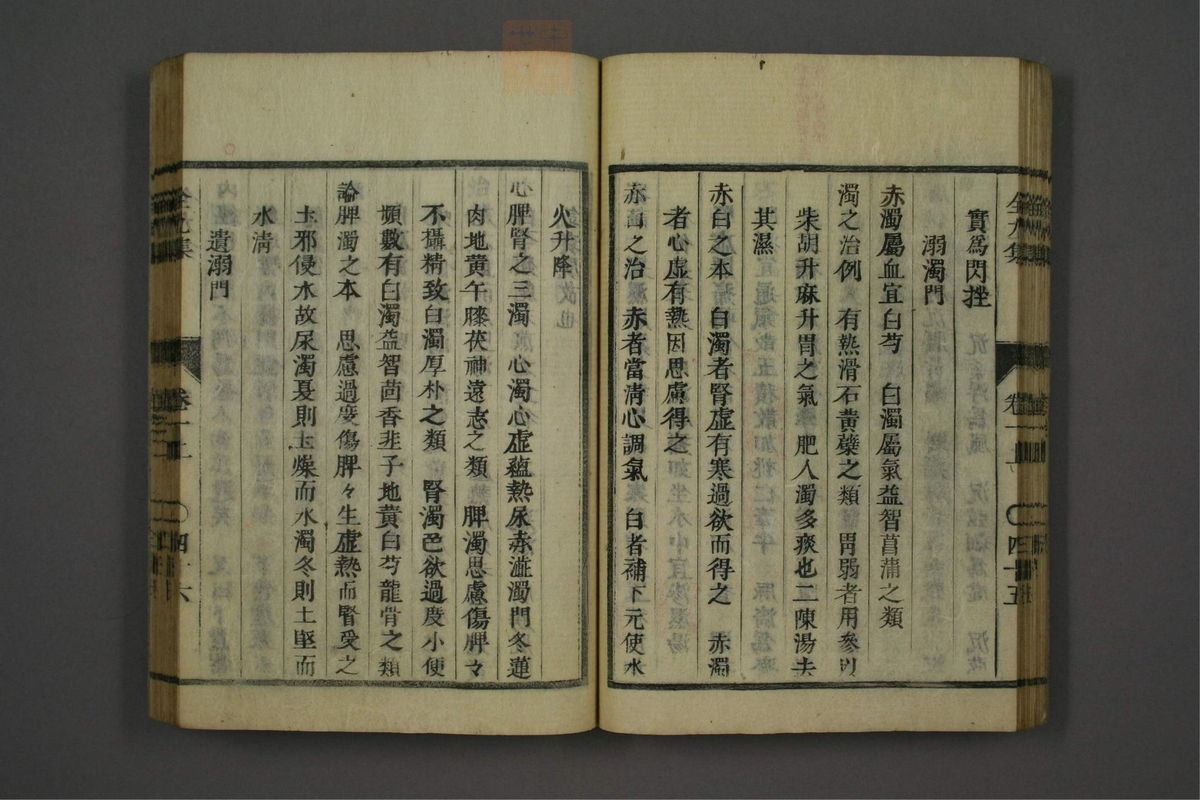 實爲閃挫
溺濁門
赤濁屬血宜白芍　白濁屬氣益智菖蒲之類
濁之治例　有熱滑石黃蘗之類　胃弱者用參以
柴胡升麻升胃之氣　肥人濁多痰也二陳湯去
其濕
赤白之本　白濁者腎虛有寒過欲而得之　赤濁
者心虛有熱因思慮得之
赤白之治　赤者當淸心調氣　白者補下元使水
卷一上　〇四十五
火升降
心脾腎之三濁　心濁心虛蘊熱尿赤澁濁門冬蓮
肉地黃午膝茯神遠志之類　脾濁思慮傷脾々
不攝精致白濁厚朴之類　腎濁色欲過度小便
頻數有白濁益智茴香韭子地黃白芍龍骨之類
論脾濁之本　思慮過度傷脾々生虛熱而腎受之
土邪侵水故尿濁夏則土燥而水濁冬則土堅而
水淸
遺溺門
全九集　卷一上　〇四十六